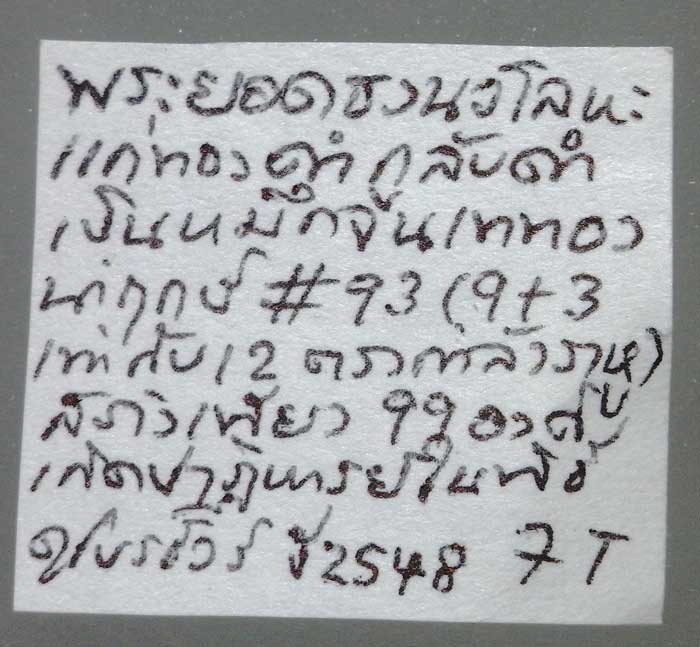 พระยอดธงนวโลหะ
แก่ทองดำ กลับดำ
เป็นหมึกจีน เททอง
นำฤกษ์ #93 (9+3
เท่ากับ 12 ตรงกำลังราหู)
สร้างเพียง 99 องค์
เกิดปาฏิหารย์ในพิธี
ปี 2548 7 T